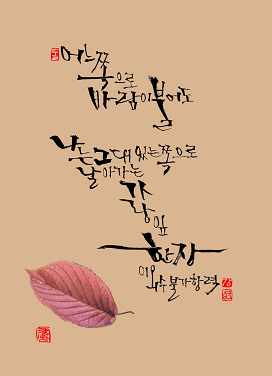 어느쪽으로
바람이 불어도
나는 그대 있는 쪽으로
날아가는
가랑잎
한 장
이외수 불가항력